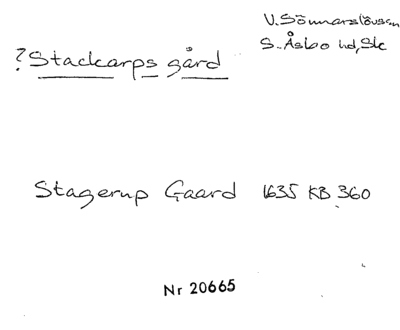 V. Sönnarslövssn
S. Åsbo hd, Sk
?Stackarps gård
Stagerup Gaard 1635 KB 360
Nr 20665